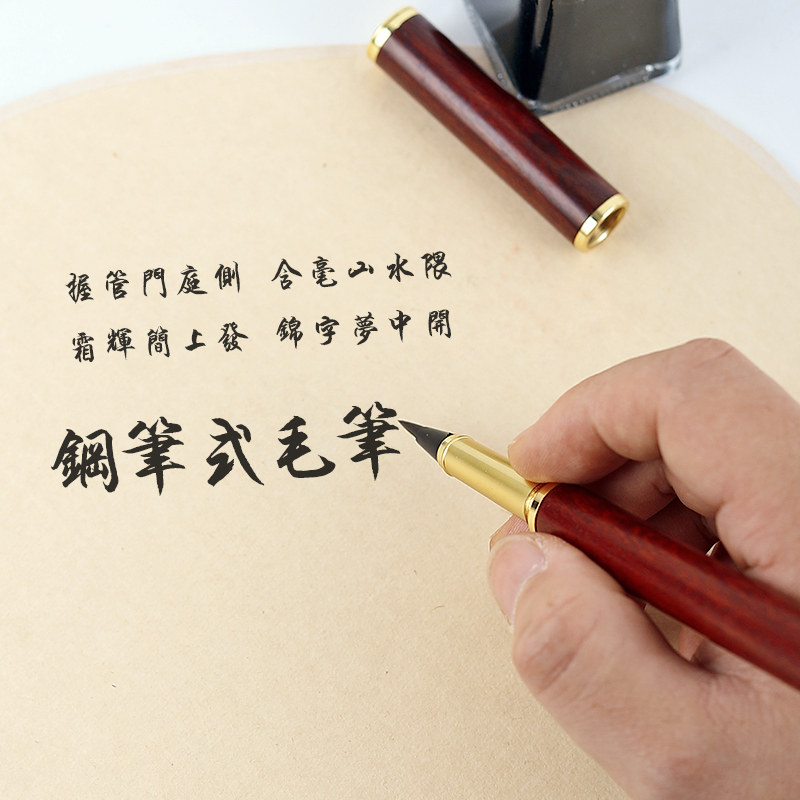 握管門庭側 含毫山水隈
霜輝簡上發 錦字夢中開
鋼筆式毛筆